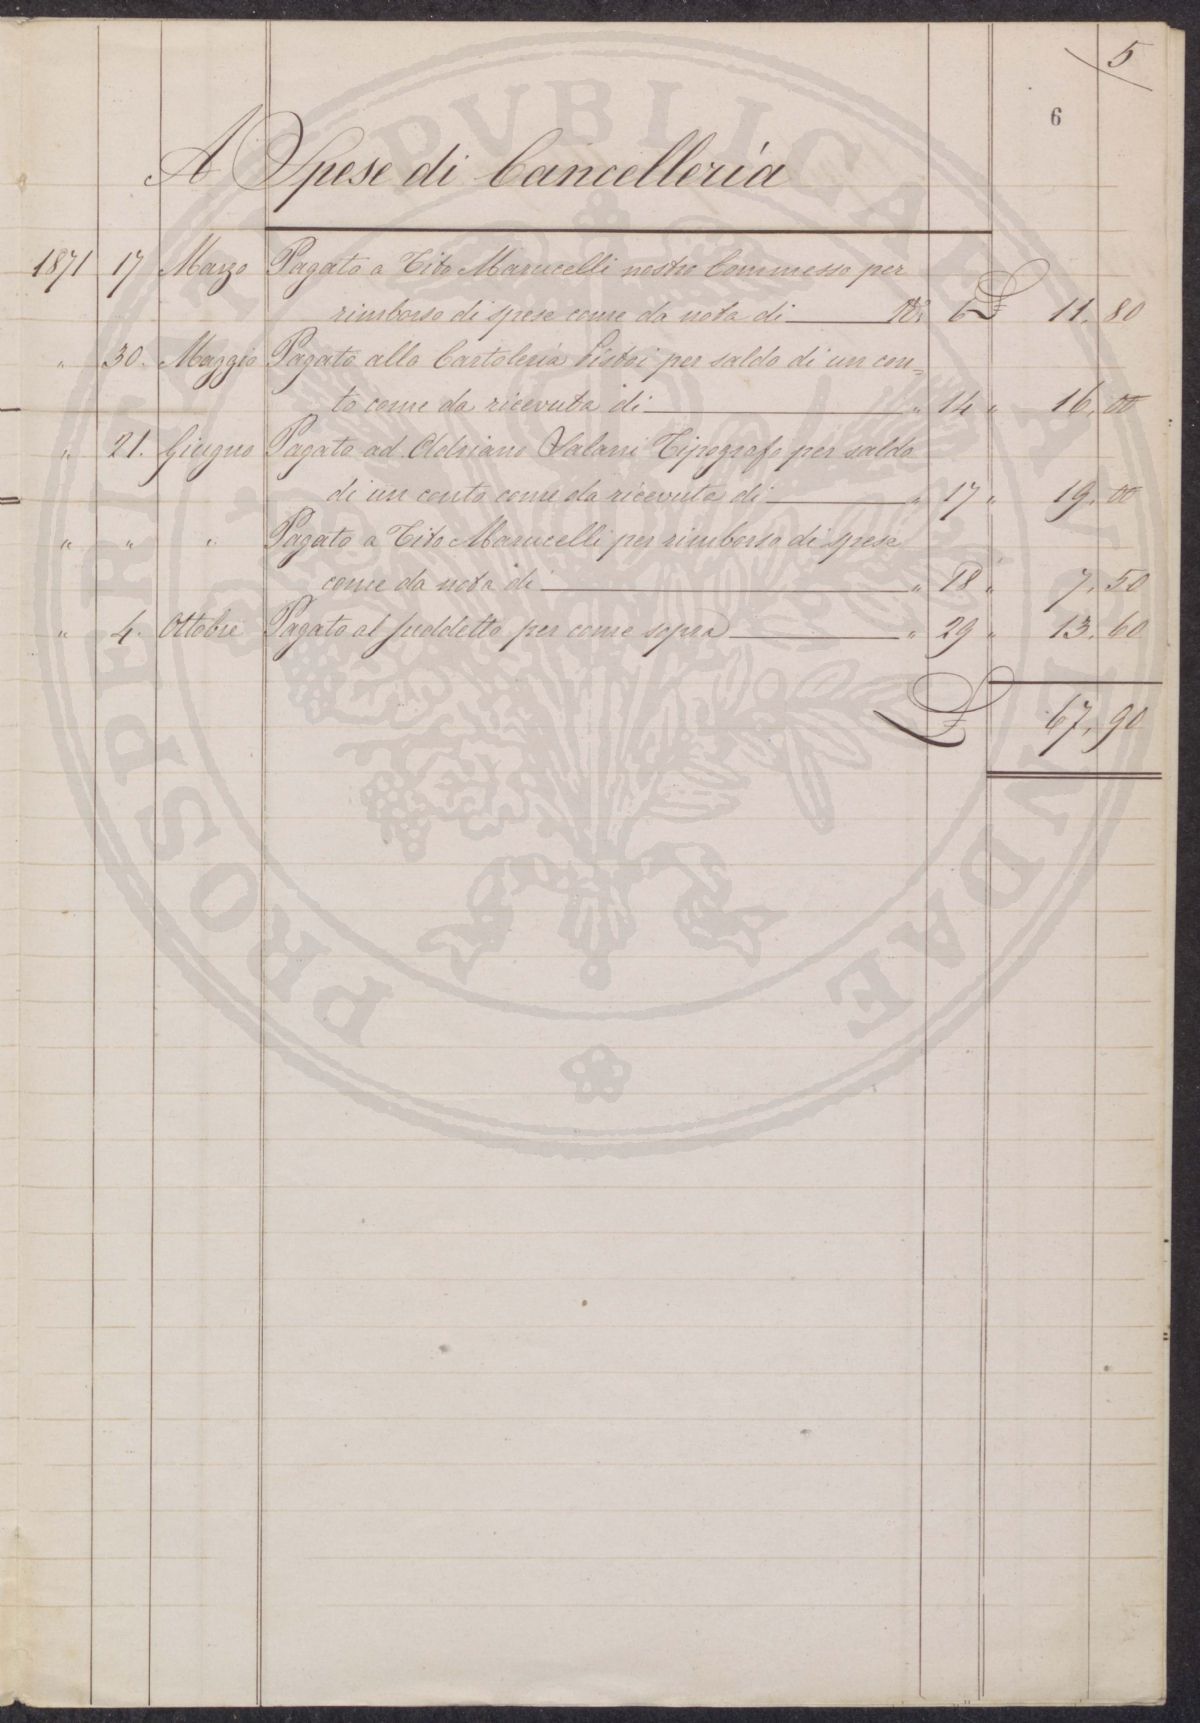 5
6
A Spese di Cancelleria
1871 17 Marzo Pagato a Tito Marucelli nostro Commesso per
rimborso di spese come da nota di 6 £ 11. 80
" 30. Maggio Pagato alla Cartoleria Pistoi per saldo di un con=
to come da ricevuta di " 14 " 16. 00
" 21. Giugno Pagato ad Adriano Salani Tipografo per saldo
di un conto come da ricevuta di " 17 " 19. 00
" " " Pagato a Tito Marucelli per rimborso di spese
come da nota di " 18 " 7. 50
" 4. Ottobre Pagato al suddetto per come sopra " 29 " 13. 60
£ 67. 90
PROSPERITATI PVBLICAE AVGENDAE